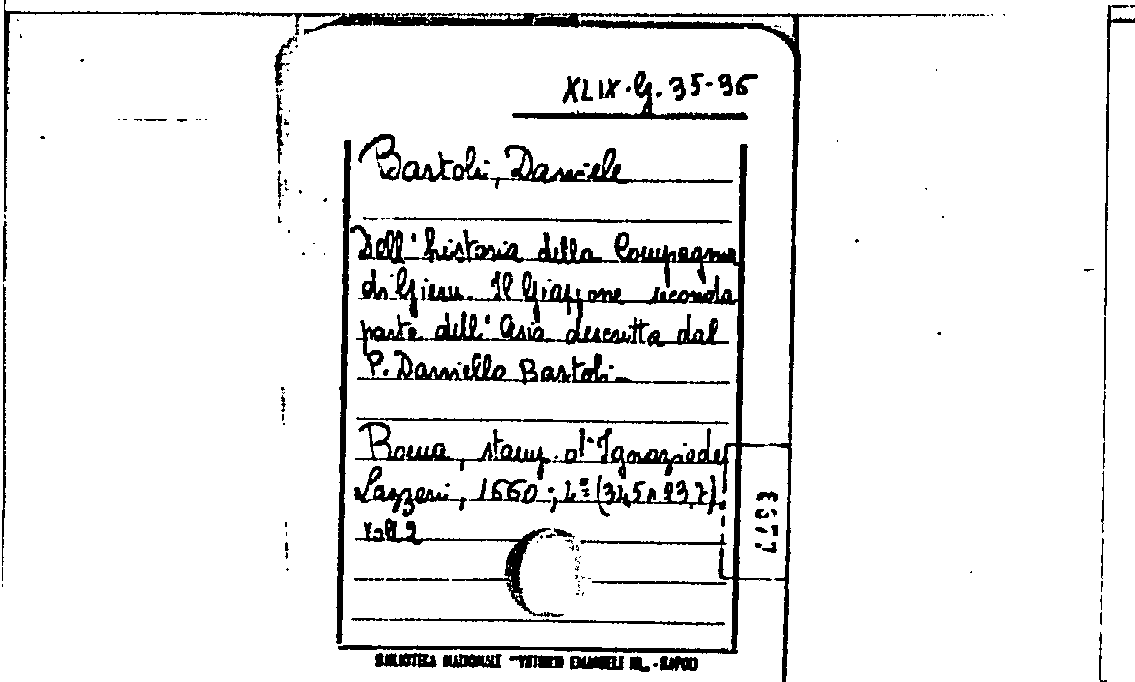 XLIX.G.35-36
Bartoli, Daniele
Dell'historia della Compagnia
di Giesu. Il Giappone seconda
parte dell'Asia descritta dal
P. Daniello Bartoli.
Roma, stamp. d'Ignazio de
Lazzeri, 1660; 4º (34,5 x 23,7).
Voll. 2
BIBLIOTECA NAZIONALE "VITTORIO EMANUELE III" - NAPOLI